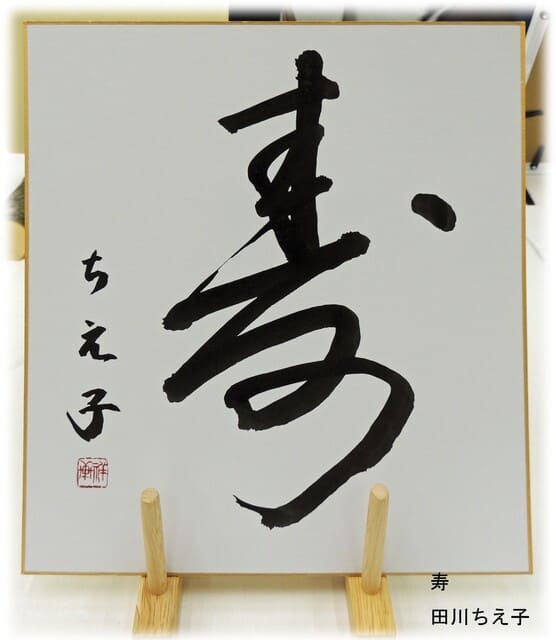 寿
ちえ子
寿
田川ちえ子